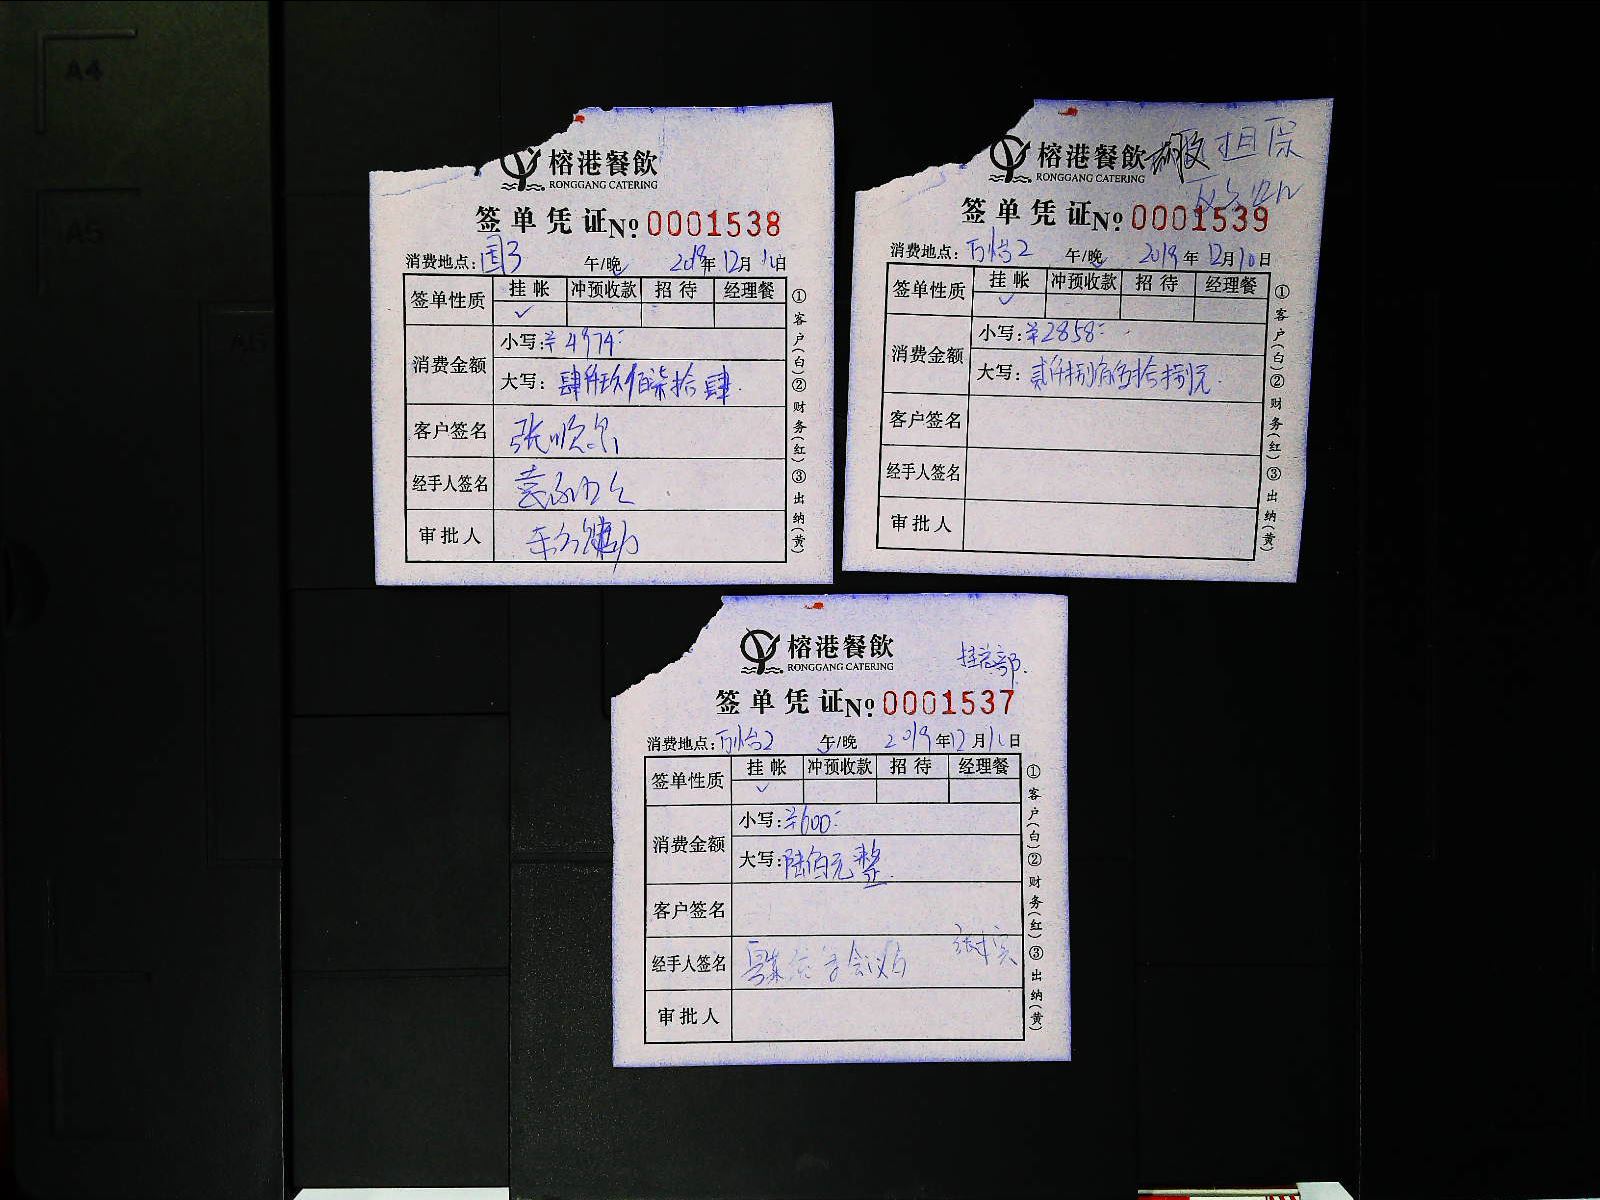 榕港餐飲
RONGGANG CATERING
签单凭证 No: 0001538
消费地点: 国3 午/晚 2019年12月10日
签单性质 挂帐 冲预收款 招待 经理餐
✓
消费金额 小写: ¥4974-
大写: 肆仟玖佰柒拾肆
客户签名
经手人签名
审批人
①客户(白)②财务(红)③出纳(黄)
榕港餐飲 担保
RONGGANG CATERING
签单凭证 No: 0001539
消费地点: 万怡2 午/晚 2019年12月10日
签单性质 挂帐 冲预收款 招待 经理餐
✓
消费金额 小写: ¥2858-
大写: 贰仟捌佰伍拾捌元
客户签名
经手人签名
审批人
①客户(白)②财务(红)③出纳(黄)
榕港餐飲
RONGGANG CATERING
签单凭证 No: 0001537
消费地点: 万怡2 午/晚 2019年12月10日
签单性质 挂帐 冲预收款 招待 经理餐
✓
消费金额 小写: ¥600-
大写: 陆佰元整
客户签名
经手人签名
审批人
①客户(白)②财务(红)③出纳(黄)
A4
A5